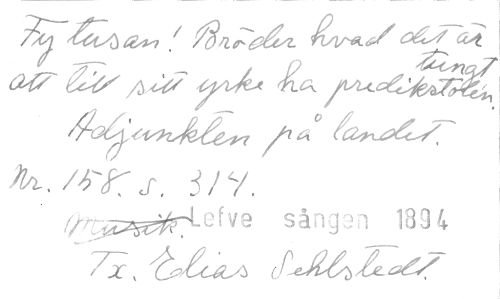 Fy tusan! Bröder hvad det är tungt
att till sitt yrke ha predikstolen.
Adjunkten på landet.
Nr. 158. s. 314.
Musik. Lefve sången 1894
Tx. Elias Sehlstedt.